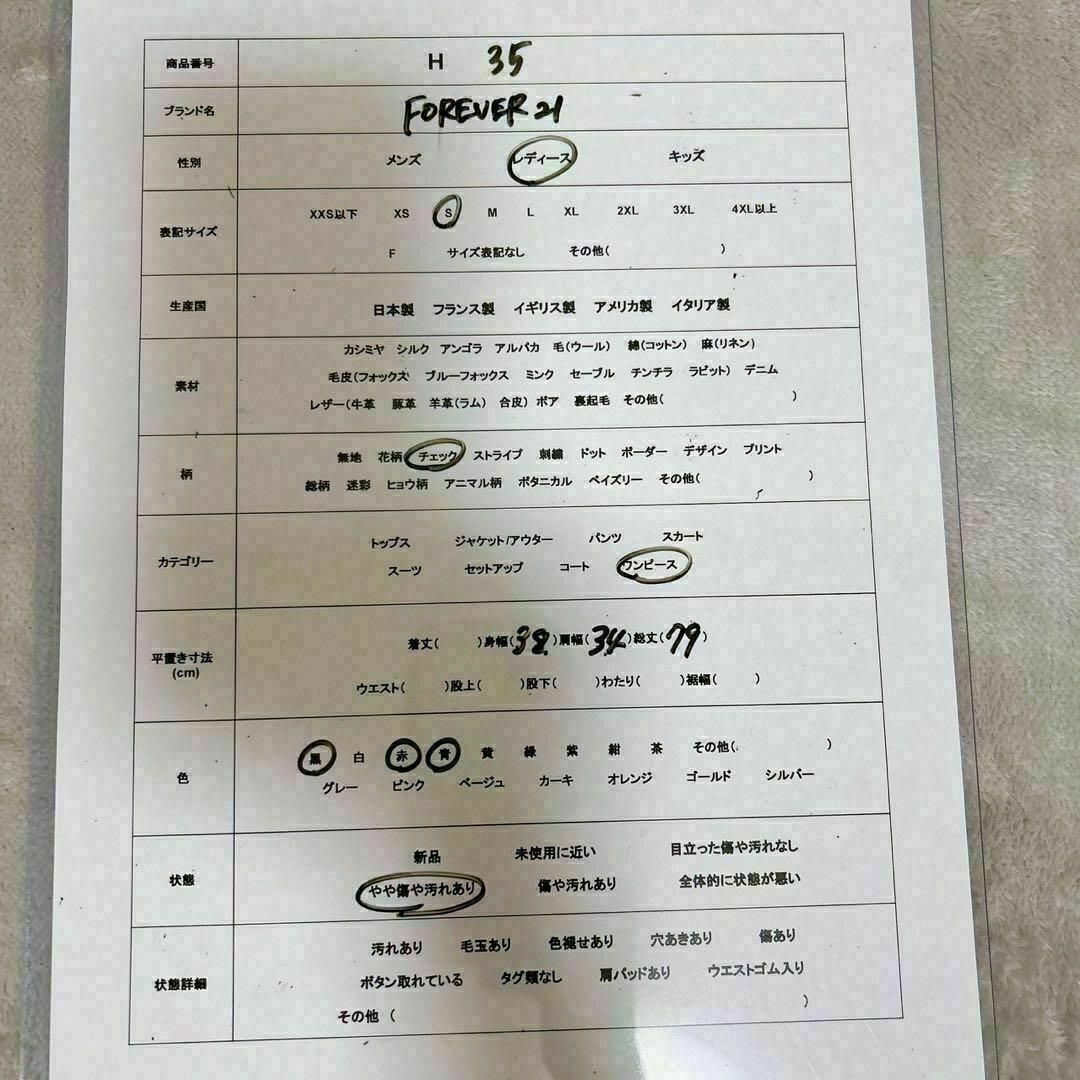 商品番号 H 35
ブランド名 FOREVER 21
性別 メンズ レディース キッズ
表記サイズ
XXS以下 XS S M L XL 2XL 3XL 4XL以上
F サイズ表記なし その他( )
生産国 日本製 フランス製 イギリス製 アメリカ製 イタリア製
素材
カシミヤ シルク アンゴラ アルパカ 毛(ウール) 綿(コットン) 麻(リネン)
毛皮(フォックス ブルーフォックス ミンク セーブル チンチラ ラビット) デニム
レザー(牛革 豚革 羊革(ラム) 合皮) ボア 裏起毛 その他( )
柄
無地 花柄 チェック ストライプ 刺繍 ドット ボーダー デザイン プリント
総柄 迷彩 ヒョウ柄 アニマル柄 ボタニカル ペイズリー その他( )
カテゴリー
トップス ジャケット/アウター パンツ スカート
スーツ セットアップ コート ワンピース
平置き寸法
(cm)
着丈( )身幅(38)肩幅(34)総丈(79)
ウエスト( )股上( )股下( )わたり( )裾幅( )
色
黒 白 赤 青 黄 緑 紫 紺 茶 その他( )
グレー ピンク ベージュ カーキ オレンジ ゴールド シルバー
状態
新品 未使用に近い 目立った傷や汚れなし
やや傷や汚れあり 傷や汚れあり 全体的に状態が悪い
状態詳細
汚れあり 毛玉あり 色褪せあり 穴あきあり 傷あり
ボタン取れている タグ類なし 肩パッドあり ウエストゴム入り
その他 ( )